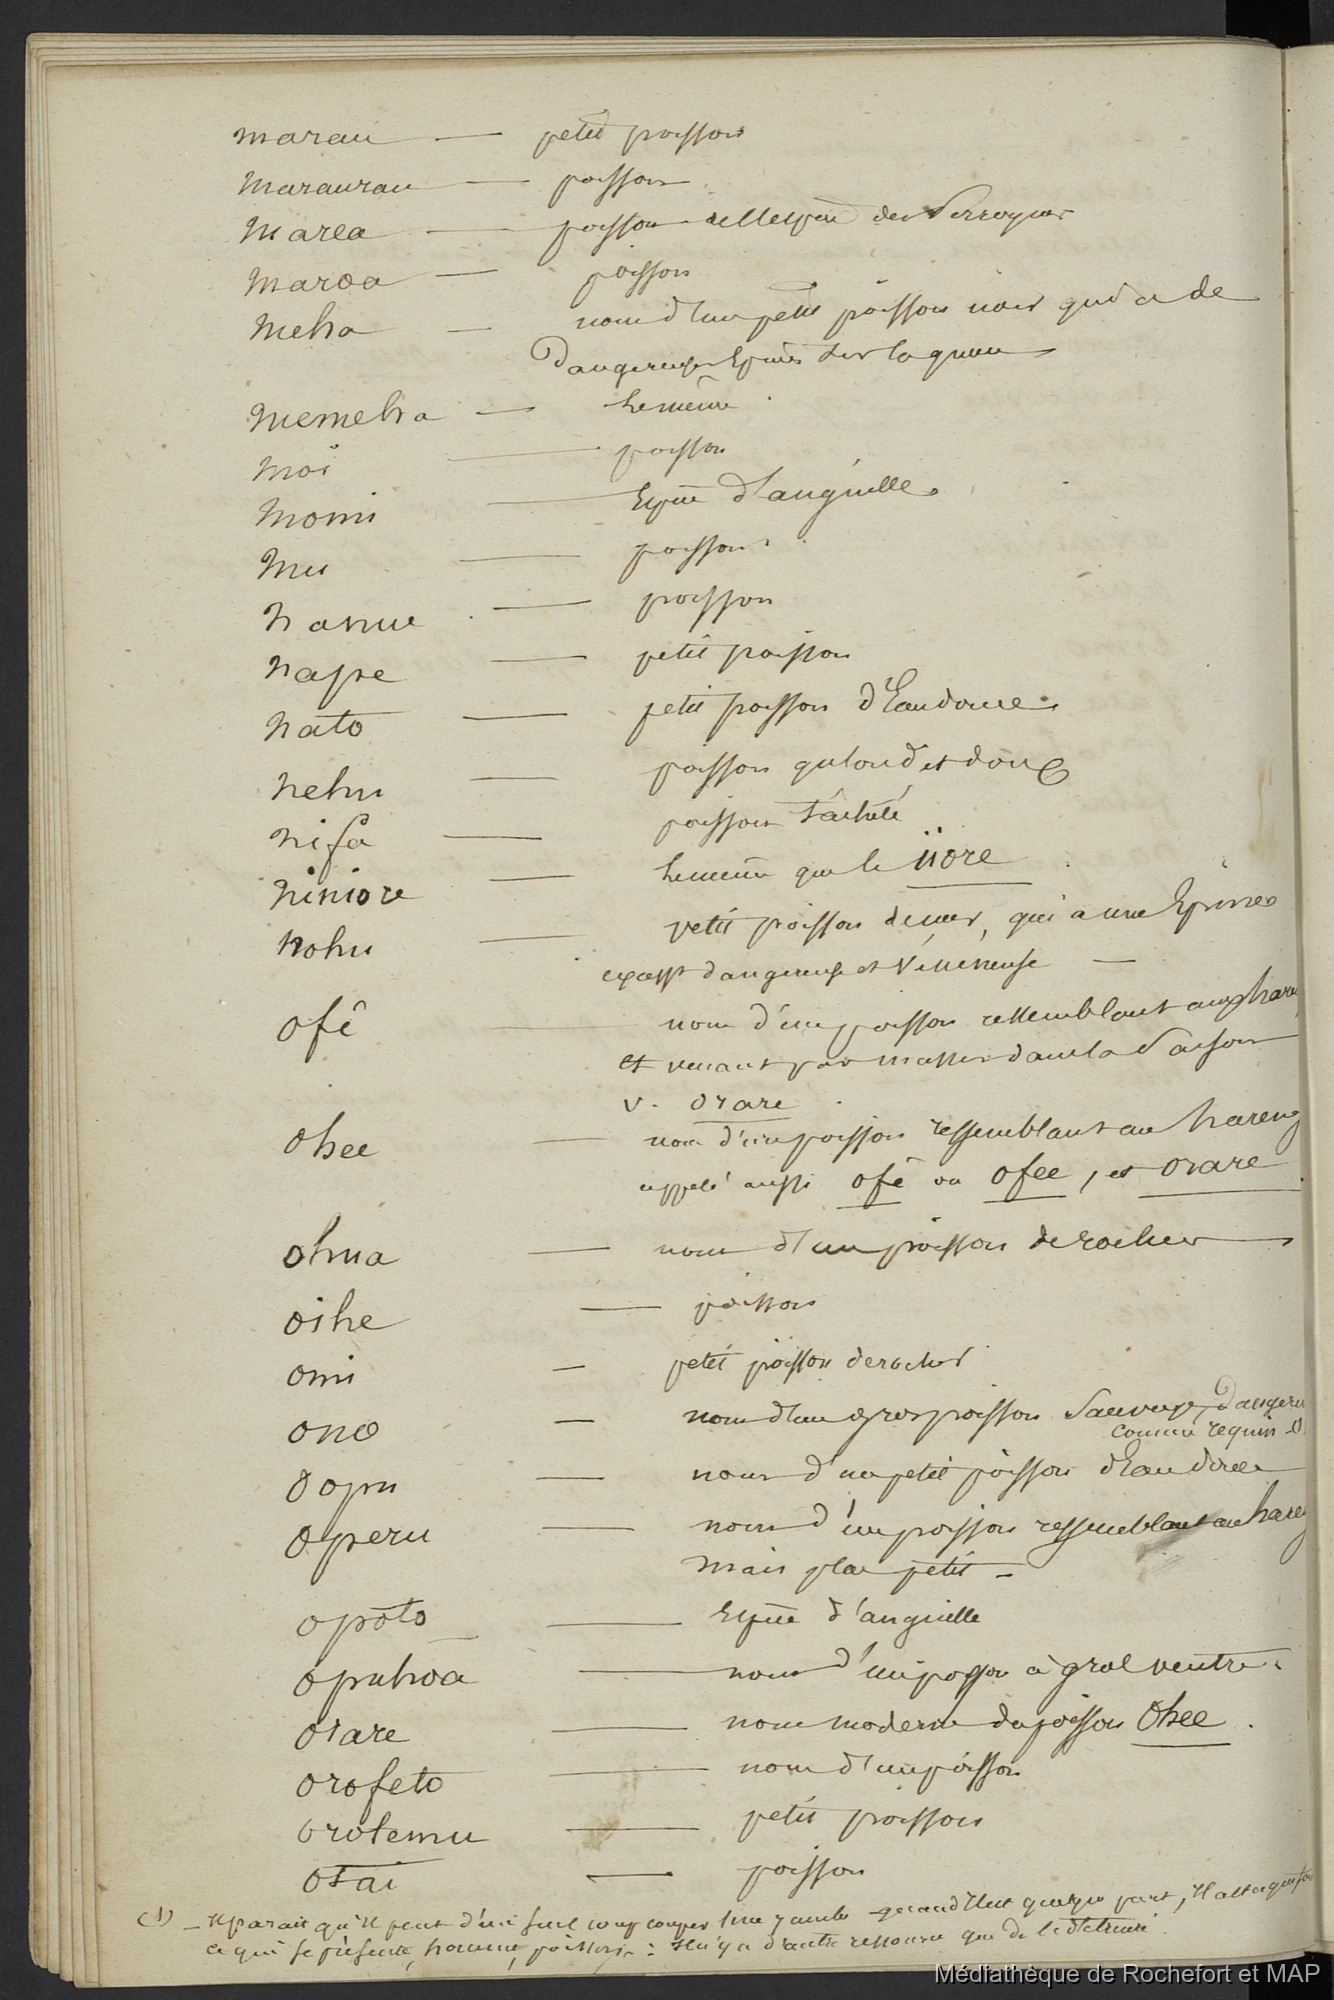 marau — petit poisson
maraurau — poisson
marea — poisson de l'espèce des Perroquets
maroa — poisson
meha — nom d'un petit poisson noir qui a de
Dangereuses Epines sur la queue
memeha — le même
moi — poisson
momi — Espèce d'anguille
mu — poisson
nanue — poisson
nape — petit poisson
nato — petit poisson d'Eau douce
nehu — poisson rond et doux
nifa — poisson tacheté
niniore — le même que le iiore
nohu — petit poisson de mer, qui a une Epine
dangereuse et vénéneuse —
ofê — nom d'un poisson ressemblant aux hare
et venant par masses dans la saison
v. orare
ohee — nom d'un poisson ressemblant au hareng
appelé aussi ofê ou ofee, et orare
ohua — nom d'un poisson de rocher
oihe — poisson
omi — petit poisson de rocher
ono — nom d'un gros poisson sauvage, Dangereu
comme requin (1)
oopu — nom d'un petit poisson d'Eau douce
operu — nom d'un poisson ressemblant au hareng
mais plus petit —
opoto — espèce d'anguille
opuhoa — nom d'un poisson à gros ventre.
orare — nom moderne du poisson Ohee.
orofeto — nom d'un poisson
orotemu — petit poisson
otai — poisson
(1) — Il parait qu'il peut d'un seul coup couper une jambe quand il est quelque part, Il attaque tou
ce qui se présente, homme, poisson : Il n'y a d'autre ressource que de le détruire.
Médiathèque de Rochefort et MAP